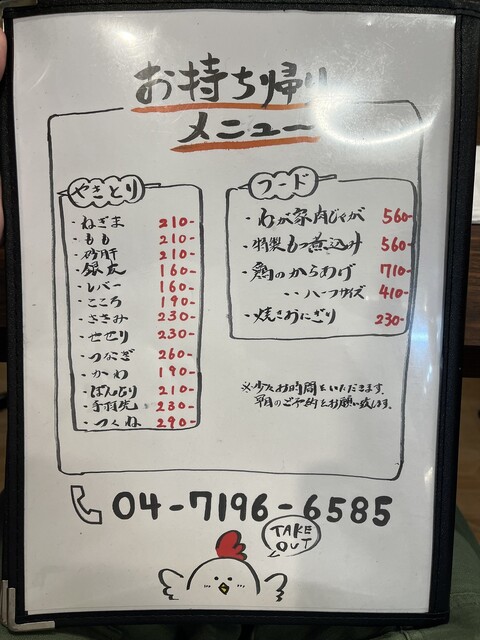 お持ち帰り
メニュー
やきとり
・ねぎま 210-
・もも 210-
・砂肝 210-
・銀杏 160-
・レバー 160-
・こころ 190-
・ささみ 230-
・せせり 230-
・つなぎ 260-
・かわ 190-
・ぼんじり 210-
・手羽先 230-
・つくね 290-
フード
・わが家肉じゃが 560-
・特製もつ煮込み 560-
・鶏のからあげ 710-
・・ハーフサイズ 410-
・焼きおにぎり 230-
※少々お時間をいただきます。
平日のご予約をお願い致します。
04-7196-6585
TAKE
OUT